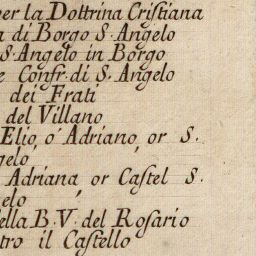 per la Dottrina Cristiana
a di Borgo S. Angelo
S. Angelo in Borgo
e Confr. di S. Angelo
dei Frati
del Villano
Elio, ó Adriano, or S.
gelo
Adriana, or Castel S.
elo
ella B. V. del Rosario
tro il Castello